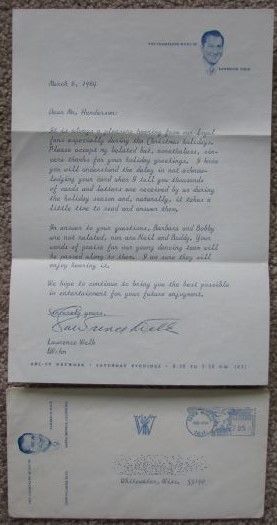 THE CHAMPAGNE MUSIC OF
LAWRENCE WELK
March 6, 1964
Dear Mr. Henderson:
It is always a pleasure hearing from our loyal
fans especially during the Christmas holidays.
Please accept my belated but, nonetheless, sin-
cere thanks for your holiday greetings. I hope
you will understand the delay in not acknow-
ledging your card when I tell you thousands
of cards and letters are received by us during
the holiday season and, naturally, it takes a
little time to read and answer them.
In answer to your questions, Barbara and Bobby
are not related, nor are Neil and Buddy. Your
words of praise for our young dancing team will
be passed along to them. I am sure they will
enjoy hearing it.
We hope to continue to bring you the best possible
in entertainment for your future enjoyment.
Sincerely yours,
Lawrence Welk
Lawrence Welk
LW:hn
ABC-TV NETWORK • SATURDAY EVENINGS • 8:30 TO 9:30 PM
W
Whitewater, Wisc.